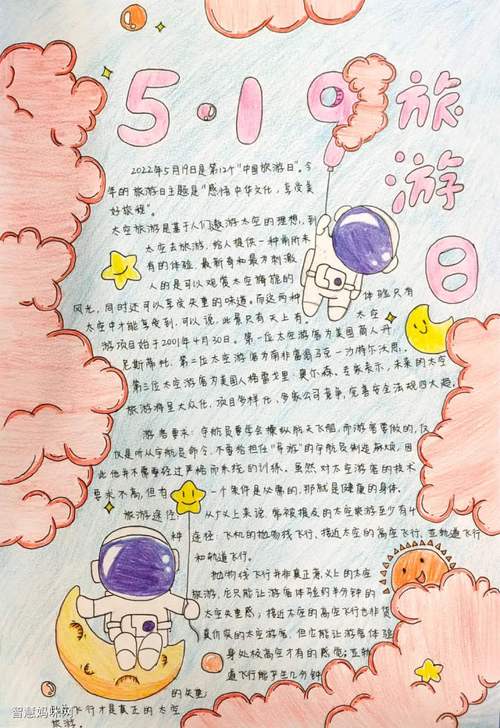 5·19
旅游日
2022年5月19日是第12个“中国旅游日”。今
年的旅游日主题是“感悟中华文化,享受美
好旅程”。
太空旅游是基于人们遨游太空的理想,到
太空去旅游,给人提供一种前所未
有的体验,最新奇和最为刺激
人的是可以观赏太空旖旎的
风光,同时还可以享受失重的味道。而这两种体验只有
太空中才能享受到,可以说,此景只有天上有。太空
游项目始于2001年4月30日。第一位太空游客为美国商人丹
尼斯蒂托,第二位太空游客为南非富翁马克-沙特尔沃思,
第三位太空游客为美国人格雷戈里·奥尔森。专家表示,未来的太空
旅游将呈大众化、项目多样化、多家公司竞争、完善安全法规四大趋
游客要求:宇航员要学会操纵航天飞船,而游客要做的,仅
仅是听从宇航员命令,不要给担任“导游”的宇航员制造麻烦,因
此他并不需要经过严格而系统的训练。虽然对太空游客的技术
要求不高,但有一个条件是必需的,那就是健康的身体。
旅游途径:从广义上来说,常被提及的太空旅游至少有4
种途径:飞机的抛物线飞行、接近太空的高空飞行、亚轨道飞行
和轨道飞行。
抛物线飞行并非真正意义上的太空
旅游,它只能让游客体验约半分钟的
太空失重感;接近太空的高空飞行也非货
真价实的太空游客,但它能让游客体验
身处极高空才有的感觉;亚轨
道飞行能产生几分钟
的失重
飞行才是真正的太空
旅游。
智慧妈咪网